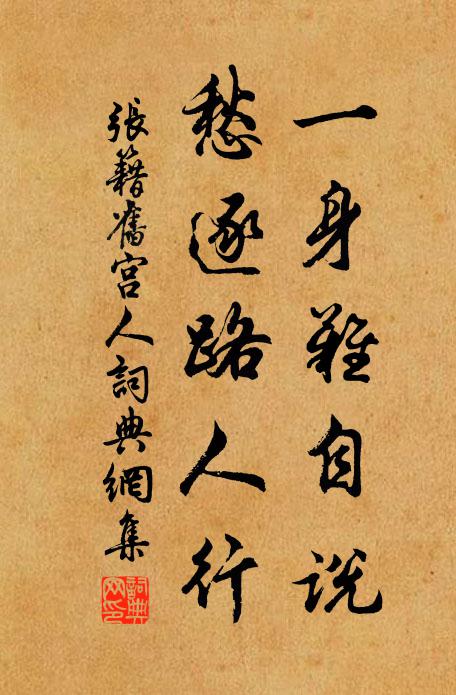 一身難自說
愁逐路人行
張籍舊宮人詞典網集
詞典網印